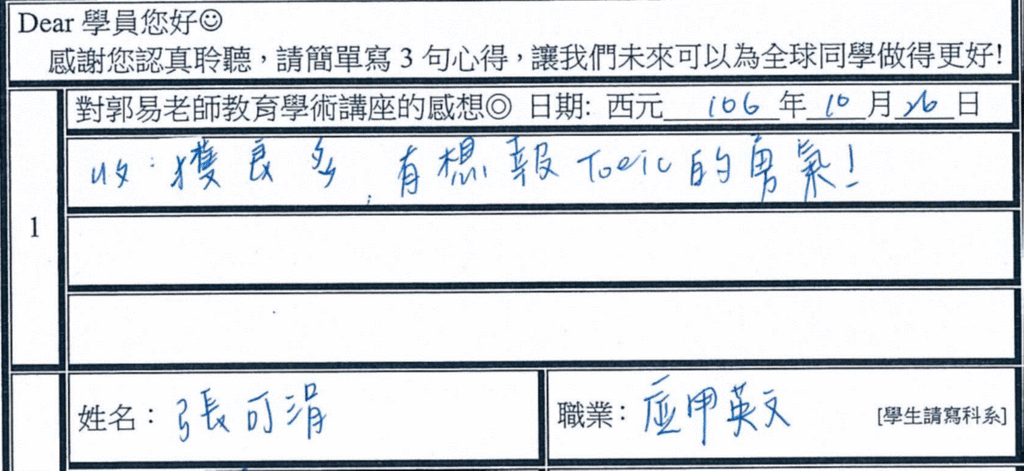 Dear 學員您好☺
感謝您認真聆聽，請簡單寫 3 句心得，讓我們未來可以為全球同學做得更好!
對郭易老師教育學術講座的感想◎ 日期: 西元 106 年 10 月 26 日
收獲良多，有想報 Toeic 的勇氣!
1
姓名：張可涓
職業：應用英文 [學生請寫科系]